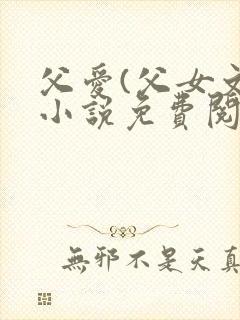 父愛(父女文
小說免費閱
無邪不是天真